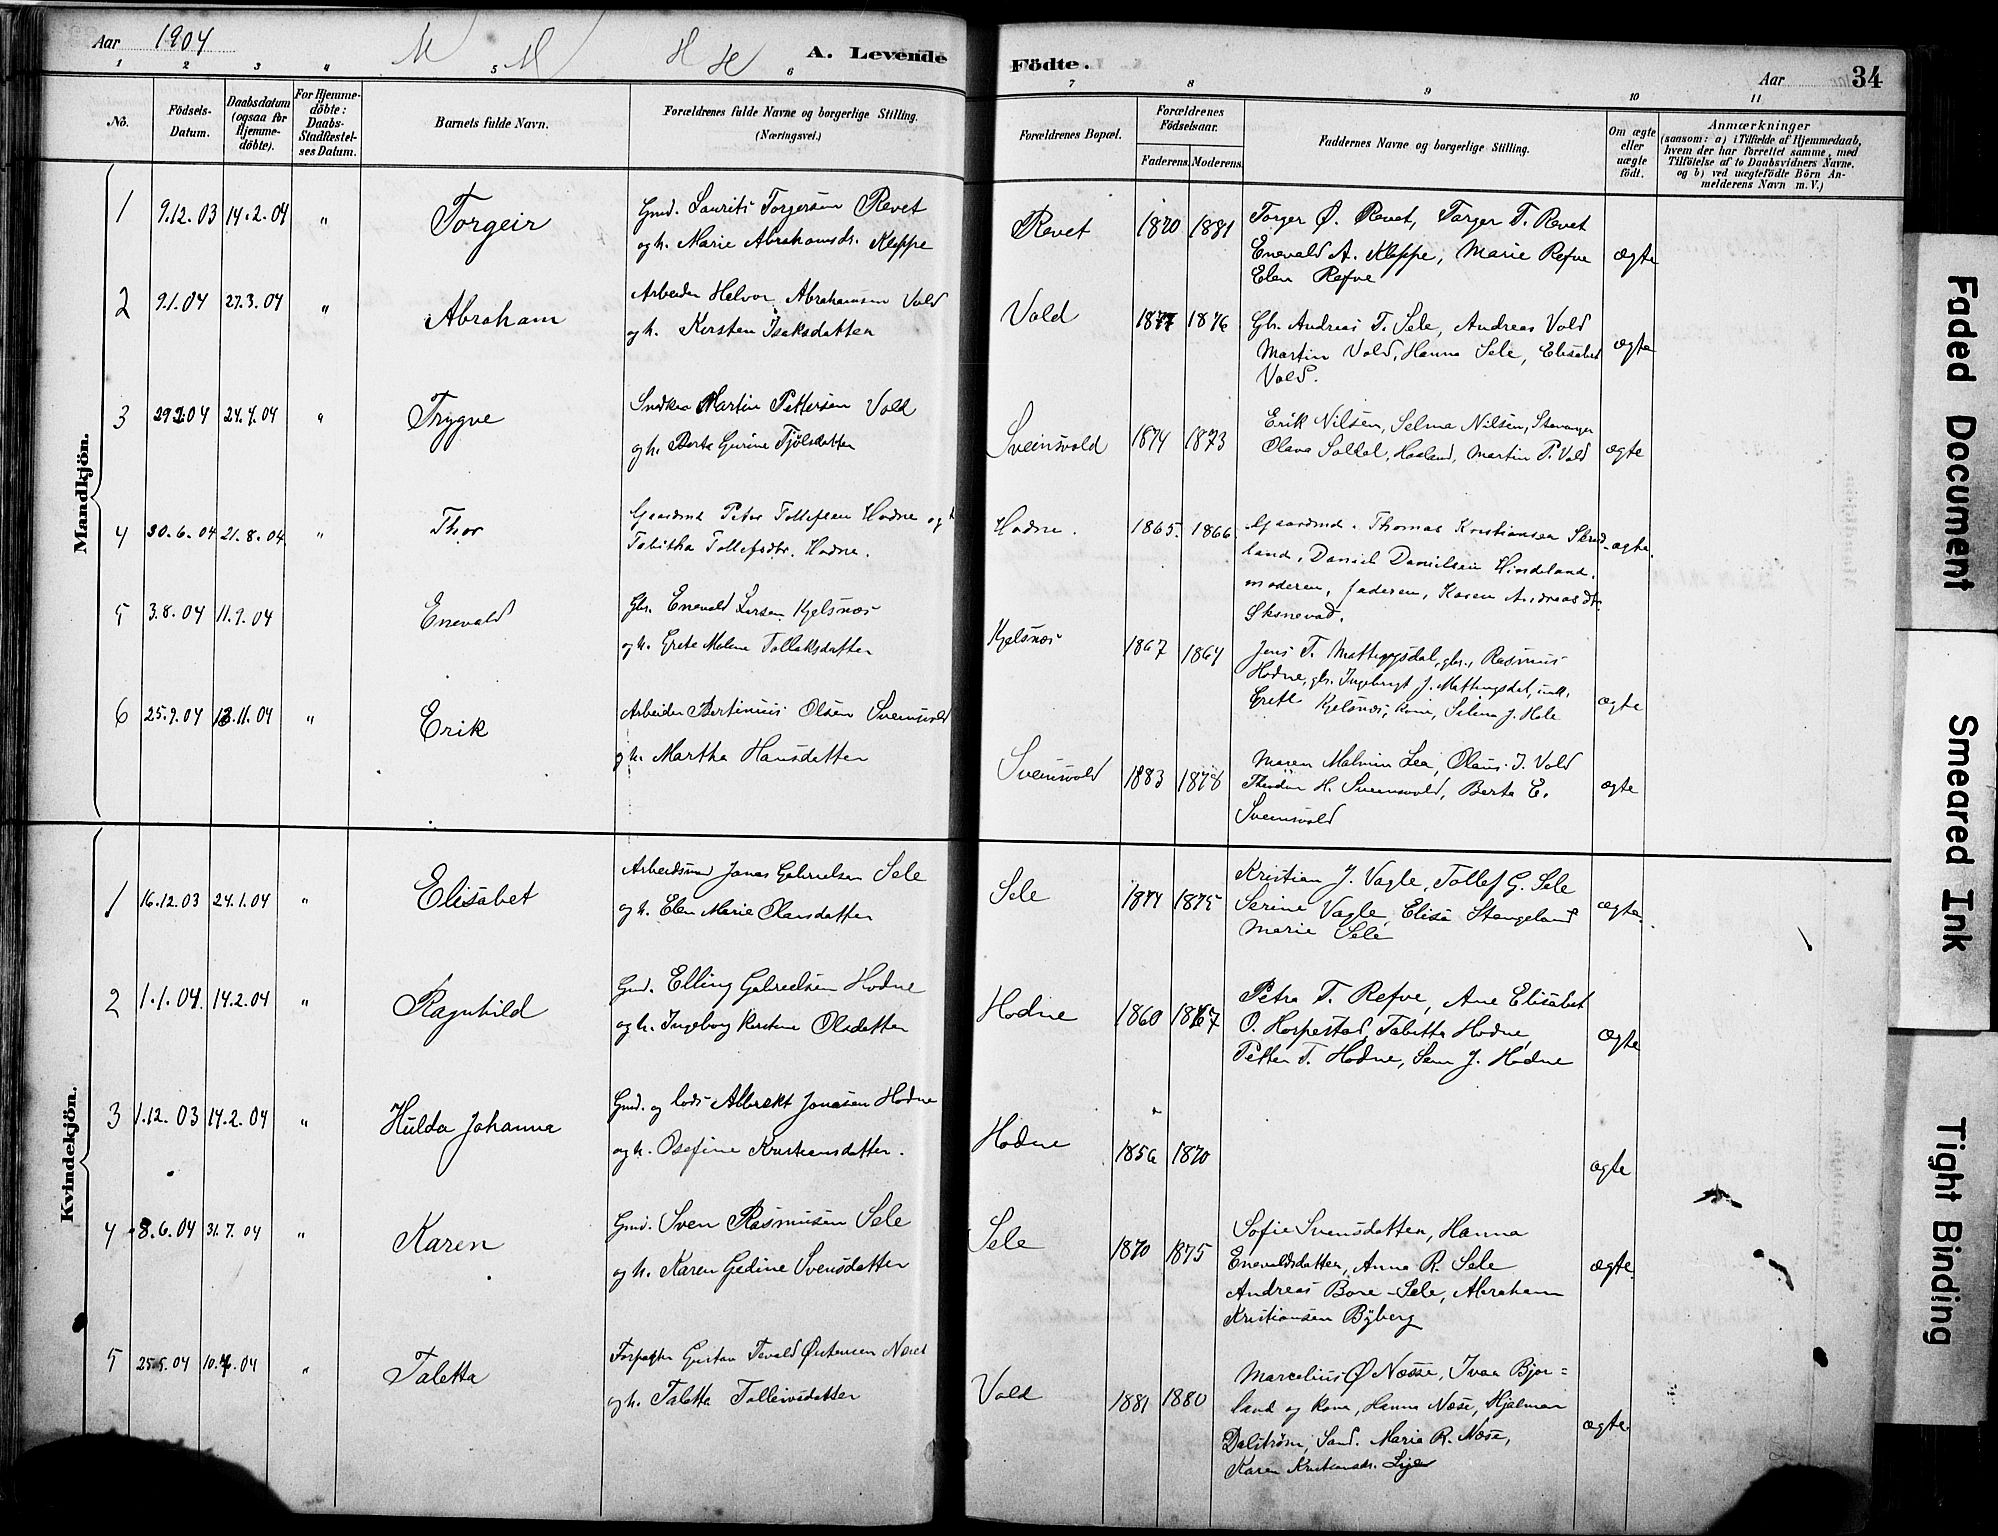 Aar 1904
A. Levende Födte.
Aar 34
1 2 3 4 5 6 7 8 9 10 11
No.
Födsels-Datum.
Daabsdatum (ogsaa for Hjemme-döbte).
For Hjemme-döbte: Daabs-Stadfæstel-ses Datum.
Barnets fulde Navn.
Forældrenes fulde Navne og borgerlige Stilling.
(Næringsvei.)
Forældrenes Bopæl.
Forældrenes Födselsaar.
Faderens. Moderens.
Faddernes Navne og borgerlige Stilling.
Om ægte eller uægte födt.
Anmærkninger
(saasom: a) i Tilfælde af Hjemmedaab,
hvem der har forrettet samme, med
Tilföielse af to Daabsvidners Navne,
og b) ved uægtefödte Börn An-
melderens Navn m. V.)
Mandkjön.
1 9.12.03 14.2.04 " Torgeir
Gmd. Laurits Torgersen Revet
og h. Marie Abrahamsdr. Kleppe
Revet 1870 1881
Torger Ø. Revet, Torger T. Revet
Enevald A. Kleppe, Marie Refve
Elen Refve
ægte
2 9.1.04 27.3.04 " Abraham
Arbeider Helvor Abrahamsen Vold
og h. Kersten Isaksdatter
Vold 1877 1876
Gbr. Andreas T. Sele, Andreas Vold
Martin Vold, Hanna Sele, Elisabet
Vold.
ægte
3 29.2.04 24.4.04 " Trygve
Snedker Martin Pettersen Vold
og h. Berta Gurine Tjölsdatter
Sveinsvold 1874 1873
Erik Nilsen, Selma Nilsen, Stavanger
Olava Haaland, Martin P. Vold
ægte
4 30.6.04 21.8.04 " Thor
Gaardmd. Peter Tollefsen Hodne og h
Tabitha Tollefsdtr. Hodne.
Hodne. 1865. 1866.
Gaardmd. Thomas Kristiansen
land, Daniel Danielsen Hindeland,
moderen, faderen, Karen Andreasdtr.
Skjnevad.
ægte.
5 3.8.04 11.9.04 Enevald
Gbr. Enevald Larsen Kjelsnæs
og h. Grete Malene Tollaksdatter
Kjelsnæs 1867 1864
Jens T. Mattingsdal, gbr., Rasmus
Hodne, gbr. Ingebrigt J. Mattingsdal,
Grete Kjelsnæs, kone, Selina J. Hole
ægte
6 25.9.04 13.11.04 " Erik
Arbeider Bertinius Olsen Sveinsvold
og h. Martha Hansdatter
Sveinsvold 1883 1878
Maren Malvine Lea, Olaus J. Vold
Theodor H. Sveinsvold, Berta E.
Sveinsvold
ægte
Kvindekjön.
1 16.12.03 24.1.04 " Elisabet
Arbeidsmd Jonas Gabrielsen Sele
og h. Elen Marie Olausdatter
Sele 1874 1875
Kristian J. Vagle, Tollef G. Sele
Serine Vagle, Elisa Stangeland
Marie Sele
ægte.
2 1.1.04. 14.2.04 " Ragnhild
Gmd. Elling Gabrielsen Hodne
og h. Ingeborg Kerstine Olsdatter
Hodne 1860 1867
Petra T. Refve, Ane Elisabet
O. Horpestad, Tabitta Hodne
Petter T. Hodne, Sem J. Hodne
ægte
3 1.12.03 14.2.04 " Hulda Johanna
Gmd. og lods Albrekt Jonasen Hodne
og h. Osefine Kristiansdatter.
Hodne 1856 1870
ægte
4 8.6.04 31.7.04 " Karen
Gmd. Sven Rasmusen Sele
og h. Karen Gedine Svensdatter
Sele 1870 1875
Sofie Svensdatter, Hanna
Enevaldsdatter, Anna R. Sele
Andreas Bore-Sele, Abraham
Kristiansen Byberg
ægte.
5 25.5.04 10.7.04 " Taletta
Forpagter Gustav Tevald Østensen
og h. Taletta Tolleivsdatter
Vold 1881 1880
Marcelius Ø Næsse, Ivar Bjor=
land og kone, Hanna Næse, Hjalmar
Dalström, Sand. Maria R. Næse,
Karen Kristiansdr.
ægte.
Faded Document
Smeared Ink
Tight Binding